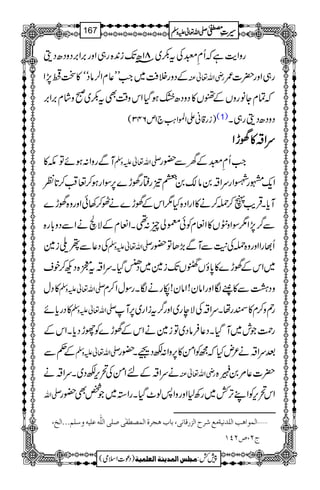 سیرتِ مصطفی صلی اللہ تعالیٰ علیہ وسلم 167
روایت ہے کہ اُمِ معبد کی یہ بکری ۱۸ھ تک زندہ رہی اور برابر دودھ دیتی
رہی اور حضرت عمر رضی اللہ تعالیٰ عنہ کے دور خلافت میں جب ’’عام الرماد‘‘ کا سخت قحط پڑا
کہ تمام جانوروں کے تھنوں کا دودھ خشک ہو گیا اس وقت بھی یہ بکری صبح و شام برابر
دودھ دیتی رہی۔ (1) (زرقانی علی المواہب ج۱ ص۳۴۶)
سراقہ کا گھوڑا
جب اُم معبد کے گھر سے حضور صلی اللہ تعالیٰ علیہ وسلم آگے روانہ ہوئے تو مکہ کا
ایک مشہور شہسوار سراقہ بن مالک بن جعشم تیز رفتار گھوڑے پر سوار ہو کر تعاقب کرتا نظر
آیا۔ قریب پہنچ کر حملہ کرنے کا ارادہ کیا مگر اس کے گھوڑے نے ٹھوکر کھائی اور وہ گھوڑے
سے گر پڑا مگر سو اونٹوں کا انعام کوئی معمولی چیز نہ تھی۔ انعام کے لالچ نے اسے دوبارہ
اُبھارا اور وہ حملہ کی نیت سے آگے بڑھا تو حضور صلی اللہ تعالیٰ علیہ وسلم کی دعا سے پتھریلی زمین
میں اس کے گھوڑے کا پاؤں گھٹنوں تک زمین میں دھنس گیا۔ سراقہ یہ معجزہ دیکھ کر خوف و
دہشت سے کانپنے لگا اور امان! امان! پکارنے لگا۔ رسول اکرم صلی اللہ تعالیٰ علیہ وسلم کا دل
رحم و کرم کا سمندر تھا۔ سراقہ کی لاچاری اور گریہ زاری پر آپ صلی اللہ تعالیٰ علیہ وسلم کا دریائے
رحمت جوش میں آ گیا۔ دعا فرما دی تو زمین نے اس کے گھوڑے کو چھوڑ دیا۔ اس کے
بعد سراقہ نے عرض کیا کہ مجھ کو امن کا پروانہ لکھ دیجیے۔ حضور صلی اللہ تعالیٰ علیہ وسلم کے حکم سے
حضرت عامر بن فہیرہ رضی اللہ تعالیٰ عنہ نے سراقہ کے لئے امن کی تحریر لکھ دی۔ سراقہ نے
اس تحریر کو اپنے ترکش میں رکھ لیا اور واپس لوٹ گیا۔ راستہ میں جو شخص بھی حضور صلی اللہ
1 .....المواهب اللدنيةمع شرح الزرقانی، باب هجرة المصطفی صلی اللہ علیه وسلم...الخ،
ج۲،ص۱۴۲
پیش کش: مجلس المدینة العلمیة (دعوتِ اسلامی)